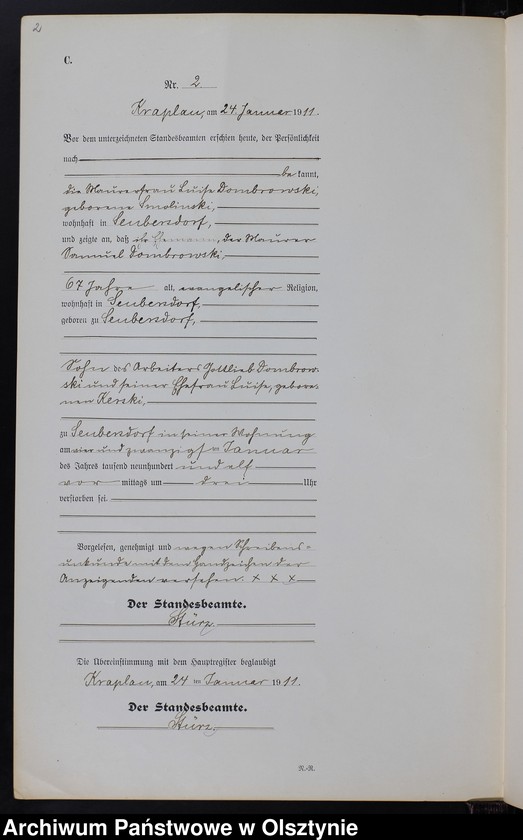 2
C.
Nr. 2.
Kraplau, am 24. Januar 1911.
Vor dem unterzeichneten Standesbeamten erschien heute, der Persönlichkeit
nach
be kannt,
die Maurerfrau Luise Dombrowski,
geborene Smolinski,
wohnhaft in Seubersdorf,
und zeigte an, daß ihr Ehemann, der Maurer
Samuel Dombrowski,
67 Jahre alt, evangelischer Religion,
wohnhaft in Seubersdorf,
geboren zu Seubersdorf,
Sohn des Arbeiters Gottlieb Dombrow-
ski und seiner Ehefrau Luise, gebore-
nen Kerski,
zu Seubersdorf in seiner Wohnung
am vier und zwanzigsten Januar
des Jahres tausend neunhundert und elf
vor mittags um drei Uhr
verstorben sei.
Vorgelesen, genehmigt und wegen Schreibens-
unkunde mit dem Handzeichen der
Anzeigenden versehen. x x x
Der Standesbeamte.
Stürz.
Die Übereinstimmung mit dem Hauptregister beglaubigt
Kraplau, am 24 ten Januar 1911.
Der Standesbeamte.
Stürz.
R.-R.
Archiwum Państwowe w Olsztynie